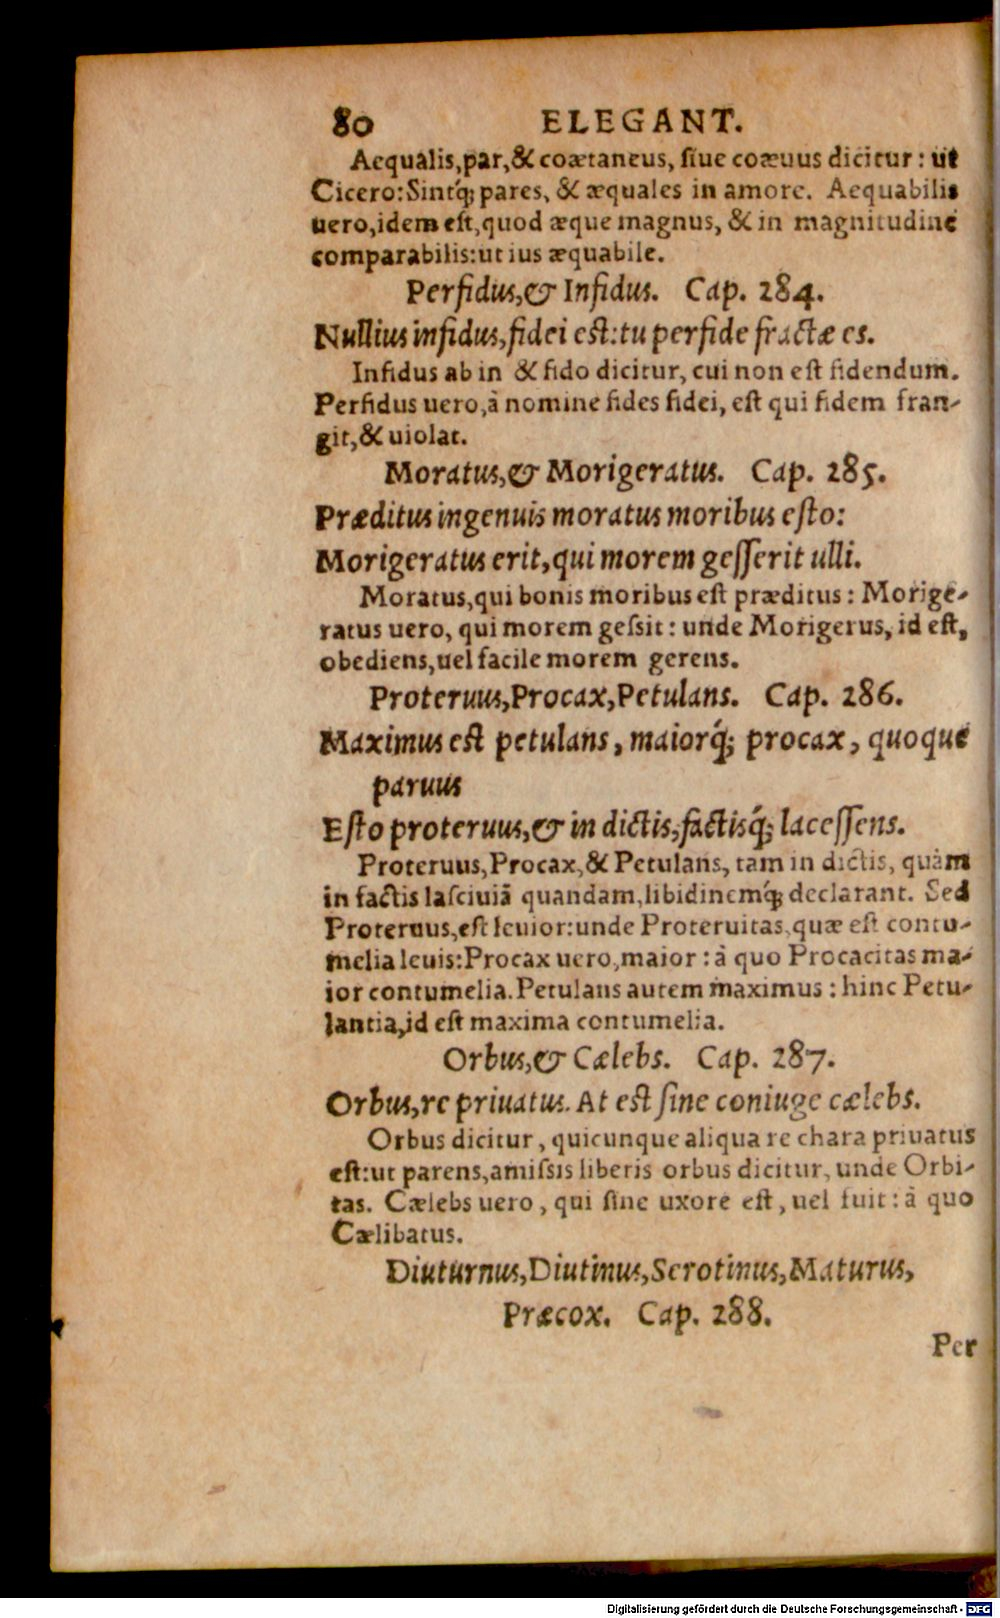 80 ELEGANT.
Aequalis,par,& coætaneus, ſiue coæuus dicitur: ut
Cicero:Sintq́; pares, & æquales in amore. Aequabilis
uero,idem eſt,quod æque magnus, & in magnitudine
comparabilis:ut ius æquabile.
Perfidus,& Infidus. Cap. 284.
Nullius infidus,fidei eſt:tu perfide fractæ es.
Infidus ab in & fido dicitur, cui non eſt fidendum.
Perfidus uero,à nomine fides fidei, eſt qui fidem fran-
git,& uiolat.
Moratus,& Morigeratus. Cap. 285.
Præditus ingenuis moratus moribus eſto:
Morigeratus erit,qui morem geſſerit ulli.
Moratus,qui bonis moribus eſt præditus: Morige-
ratus uero, qui morem geſsit: unde Morigerus, id eſt,
obediens,uel facile morem gerens.
Proteruus,Procax,Petulans. Cap. 286.
Maximus eſt petulans, maiorq́; procax, quoque
paruus
Eſto proteruus,& in dictis,factisq́; laceſſens.
Proteruus,Procax,& Petulans, tam in dictis, quàm
in factis laſciuiã quandam,libidinemq́; declarant. Sed
Proteruus,eſt leuior:unde Proteruitas,quæ eſt contu-
melia leuis:Procax uero,maior: à quo Procacitas ma-
ior contumelia.Petulans autem maximus: hinc Petu-
lantia,id eſt maxima contumelia.
Orbus,& Cælebs. Cap. 287.
Orbus,re priuatus. At eſt ſine coniuge cælebs.
Orbus dicitur, quicunque aliqua re chara priuatus
eſt:ut parens,amiſsis liberis orbus dicitur, unde Orbi-
tas. Cælebs uero, qui ſine uxore eſt, uel fuit: à quo
Cælibatus.
Diuturnus,Diutinus,Serotinus,Maturus,
Præcox. Cap. 288.
Per
Digitalisierung gefördert durch die Deutsche Forschungsgemeinschaft - DFG